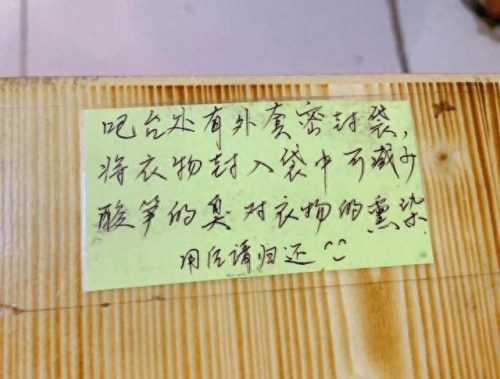 吧台处有外套密封袋,
将衣物封入袋中可减少
酸笋的臭对衣物的熏染
用后请归还^^